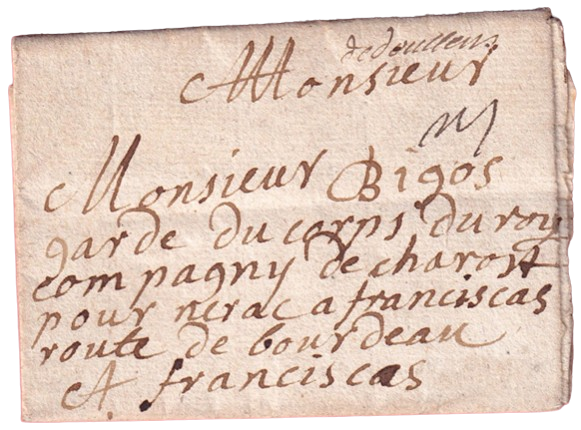 dedoullens
Monsieur
Monsieur Bigos
garde du corps du roy
compagny de charost
pour nerac a franciscas
route de bourdeau
A franciscas